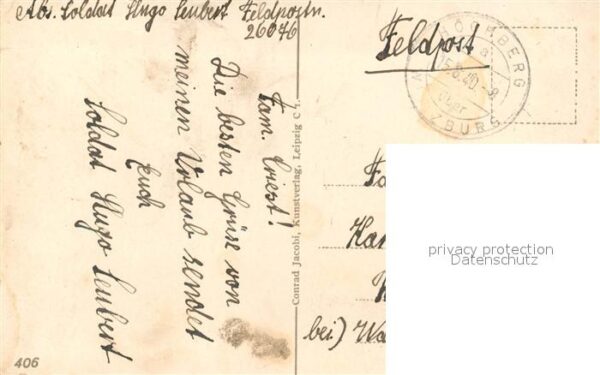 Abs. Soldat Hugo Seubert Feldpostn.
26076
Feldpost
Fam. Triest!
Die besten Grüse von
meinen Urlaub sendet
Euch
Soldat Hugo Seubert
Conrad Jacobi, Kunstverlag, Leipzig C 1.
HÖCHBERG
15.8.40.-8
über
ZBURG
Fa
Ha
bei) Wa
406
privacy protection
Datenschutz